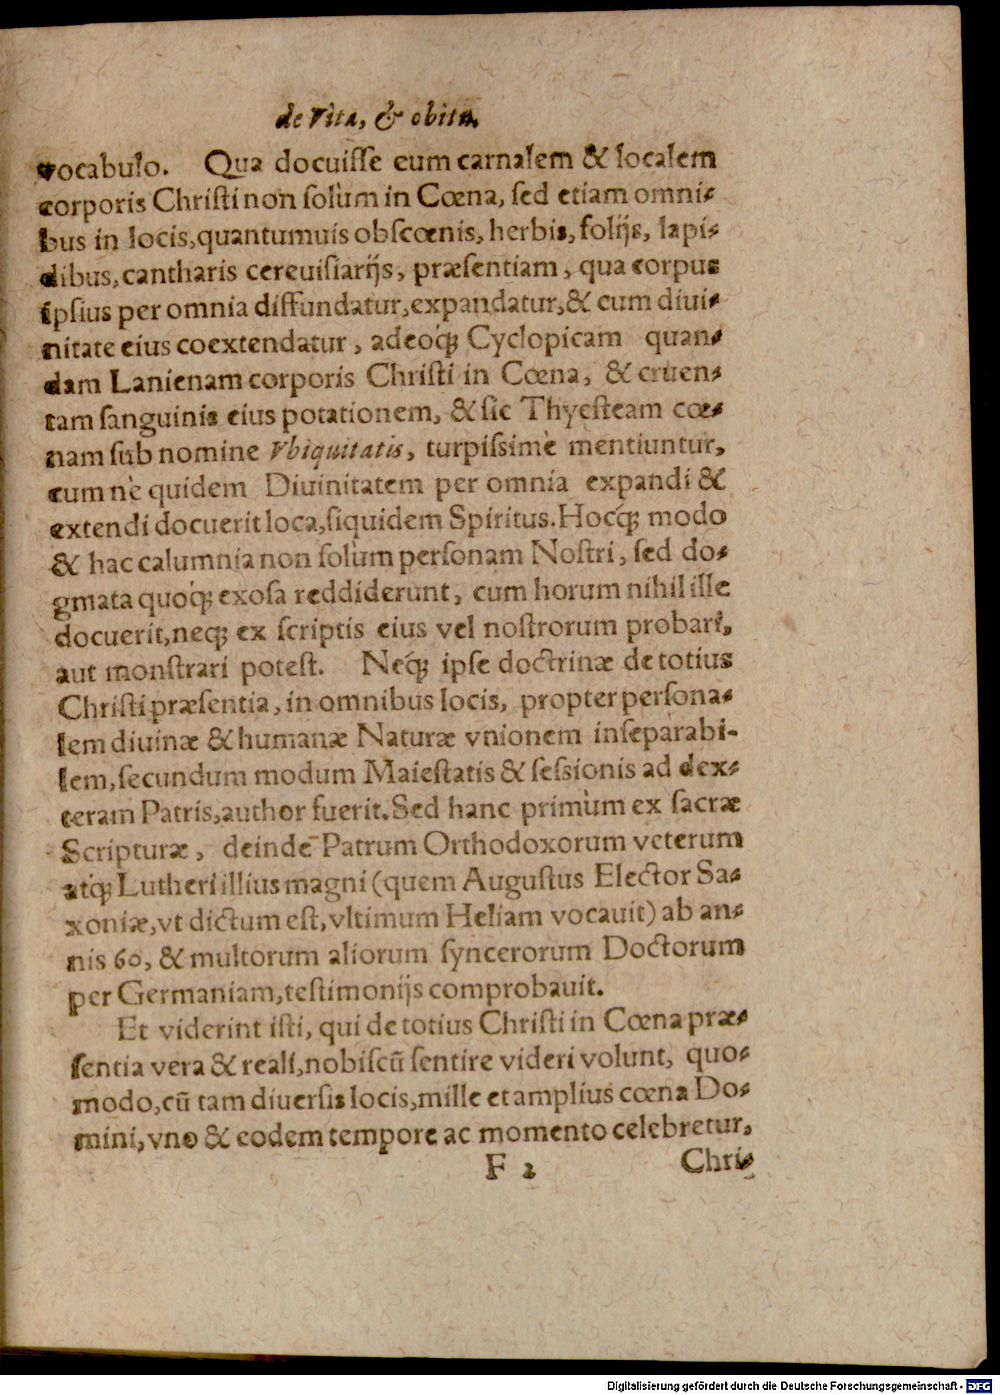 de Vita, & obitu.
vocabulo. Qua docuiſſe eum carnalem & localem
corporis Chriſti non ſolùm in Cœna, ſed etiam omni-
bus in locis, quantumuis obſcœnis, herbis, folijs, lapi-
dibus, cantharis cereuiſiarijs, præſentiam, qua corpus
ipſius per omnia diffundatur, expandatur, & cum diui-
nitate eius coextendatur, adeoq́; Cyclopicam quan-
dam Lanienam corporis Chriſti in Cœna, & cruen-
tam ſanguinis eius potationem, & ſic Thyeſteam cœ-
nam ſub nomine Vbiquitatis, turpiſsimè mentiuntur,
cum nè quidem Diuinitatem per omnia expandi &
extendi docuerit loca, ſiquidem Spiritus. Hocq́; modo
& hac calumnia non ſolùm perſonam Noſtri, ſed do-
gmata quoq́; exoſa reddiderunt, cum horum nihil ille
docuerit, neq; ex ſcriptis eius vel noſtrorum probari,
aut monſtrari poteſt. Neq́; ipſe doctrinæ de totius
Chriſti præſentia, in omnibus locis, propter perſona-
lem diuinæ & humanæ Naturæ vnionem inſeparabi-
lem, ſecundum modum Maieſtatis & ſeſsionis ad dex-
teram Patris, author fuerit. Sed hanc primùm ex ſacræ
Scripturæ, deinde Patrum Orthodoxorum veterum
atq́; Lutheri illius magni (quem Auguſtus Elector Sa-
xoniæ, vt dictum eſt, vltimum Heliam vocauit) ab an-
nis 60, & multorum aliorum ſyncerorum Doctorum
per Germaniam, teſtimonijs comprobauit.
Et viderint iſti, qui de totius Chriſti in Cœna præ-
ſentia vera & reali, nobiſcũ ſentire videri volunt, quo-
modo, cũ tam diuerſis locis, mille et amplius cœna Do-
mini, vno & eodem tempore ac momento celebretur,
F 2 Chri-
Digitalisierung gefördert durch die Deutsche Forschungsgemeinschaft - DFG